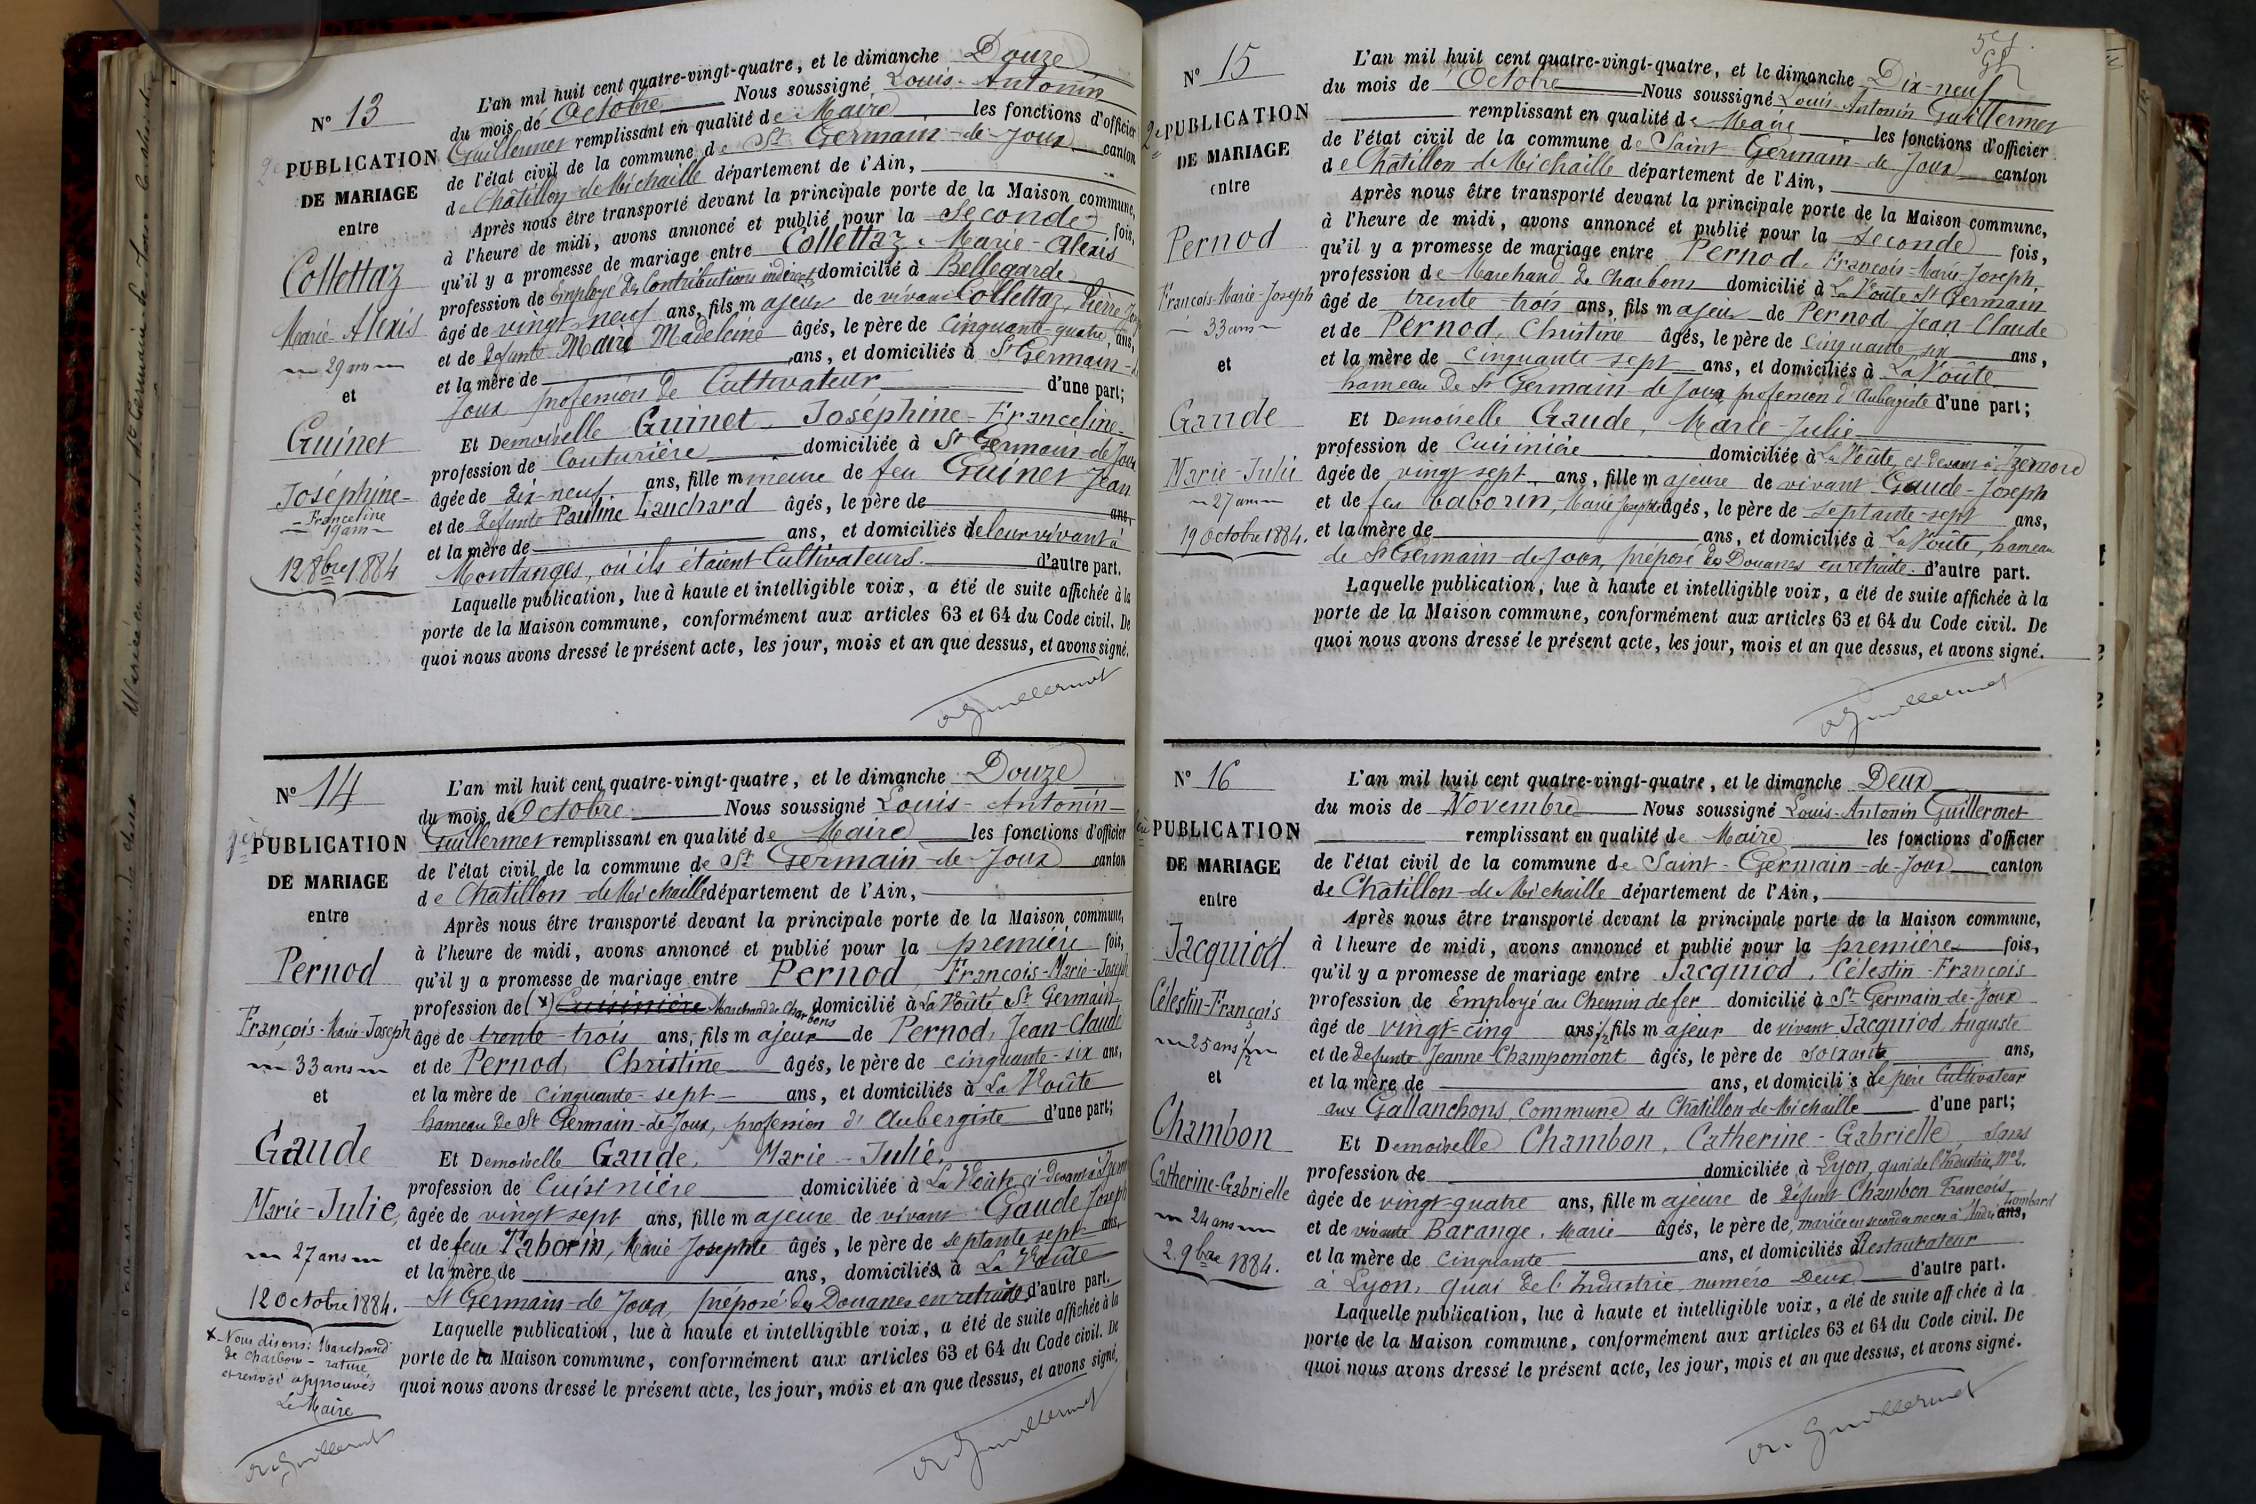 N° 13
2e PUBLICATION
DE MARIAGE
entre
Collettaz
Marie-Alexis
29 ans
et
Guinet
Joséphine-
Franceline
19 ans
12 8bre 1884
L'an mil huit cent quatre-vingt-quatre, et le dimanche Douze
du mois de Octobre Nous soussigné Louis-Antonin
Guillermet remplissant en qualité de Maire les fonctions d'officier
de l'état civil de la commune de St Germain-de-Joux canton
de Châtillon de Michaille département de l'Ain,
Après nous être transporté devant la principale porte de la Maison commune,
à l'heure de midi, avons annoncé et publié pour la seconde fois,
qu'il y a promesse de mariage entre Collettaz, Marie-Alexis
profession de Employé des Contributions indirectes domicilié à Bellegarde
âgé de vingt-neuf ans, fils majeur de vivant Collettaz, Pierre
et de défunte Maire Madeleine âgés, le père de cinquante-quatre ans,
et la mère de ans, et domiciliés à St Germain-
Joux profession de Cultivateur d'une part;
Et Demoiselle Guinet, Joséphine-Franceline
profession de Couturière domiciliée à St Germain-de-Joux
âgée de dix-neuf ans, fille mineure de feu Guinet Jean
et de défunte Pauline Lauchard âgés, le père de ans,
et la mère de ans, et domiciliés de leur vivant à
Montanges, où ils étaient Cultivateurs. d'autre part.
Laquelle publication, lue à haute et intelligible voix, a été de suite affichée à la
porte de la Maison commune, conformément aux articles 63 et 64 du Code civil. De
quoi nous avons dressé le présent acte, les jour, mois et an que dessus, et avons signé.
Guillermet
N° 14
1ère PUBLICATION
DE MARIAGE
entre
Pernod
François-Marie-Joseph
33 ans
et
Gaude
Marie-Julie,
27 ans
12 Octobre 1884.
x Nous disons: Marchand
de Charbons - rature
et renvoi approuvés
Le Maire
Guillermet
L'an mil huit cent quatre-vingt-quatre, et le dimanche Douze
du mois de Octobre Nous soussigné Louis-Antonin
Guillermet remplissant en qualité de Maire les fonctions d'officier
de l'état civil de la commune de St Germain-de-Joux canton
de Châtillon-de-Michaille département de l'Ain,
Après nous être transporté devant la principale porte de la Maison commune,
à l'heure de midi, avons annoncé et publié pour la première fois,
qu'il y a promesse de mariage entre Pernod, François-Marie-Joseph
profession de (x) Cuisinière Marchand de Charbons domicilié à La Voûte St Germain
âgé de trente-trois ans, fils majeur de Pernod, Jean-Claude
et de Pernod, Christine âgés, le père de cinquante-six ans,
et la mère de cinquante-sept ans, et domiciliés à La Voûte
hameau de St Germain-de-Joux, profession d'Aubergiste d'une part;
Et Demoiselle Gaude, Marie-Julie,
profession de Cuisinière domiciliée à La Voûte ci-devant à
âgée de vingt sept ans, fille majeure de vivant Gaude Joseph
et de feue Taborin, Marie Josephte âgés, le père de septante sept ans,
et la mère de ans, domiciliés à La Voûte
St Germain-de-Joux, préposé des Douanes en retraite d'autre part.
Laquelle publication, lue à haute et intelligible voix, a été de suite affichée à la
porte de la Maison commune, conformément aux articles 63 et 64 du Code civil. De
quoi nous avons dressé le présent acte, les jour, mois et an que dessus, et avons signé.
Guillermet
N° 15
2e PUBLICATION
DE MARIAGE
entre
Pernod
François-Marie-Joseph
33 ans
et
Gaude
Marie-Julie
27 ans
19 Octobre 1884.
L'an mil huit cent quatre-vingt-quatre, et le dimanche Dix-neuf
du mois de Octobre Nous soussigné Louis-Antonin Guillermet
remplissant en qualité de Maire les fonctions d'officier
de l'état civil de la commune de Saint Germain-de-Joux canton
de Châtillon-de-Michaille département de l'Ain,
Après nous être transporté devant la principale porte de la Maison commune,
à l'heure de midi, avons annoncé et publié pour la seconde fois,
qu'il y a promesse de mariage entre Pernod, François-Marie-Joseph,
profession de Marchand de Charbons domicilié à La Voûte St Germain
âgé de trente-trois ans, fils majeur de Pernod Jean-Claude
et de Pernod, Christine âgés, le père de cinquante six ans,
et la mère de cinquante sept ans, et domiciliés à La Voûte
hameau de St Germain-de-Joux profession d'Aubergiste d'une part;
Et Demoiselle Gaude, Marie-Julie
profession de Cuisinière domiciliée à La Voûte ci devant à Izernore
âgée de vingt sept ans, fille majeure de vivant Gaude-Joseph
et de feu Taborin, Marie Josephte âgés, le père de septante-sept ans,
et la mère de ans, et domiciliés à La Voûte, hameau
de St Germain-de-Joux, préposé des Douanes en retraite. d'autre part.
Laquelle publication, lue à haute et intelligible voix, a été de suite affichée à la
porte de la Maison commune, conformément aux articles 63 et 64 du Code civil. De
quoi nous avons dressé le présent acte, les jour, mois et an que dessus, et avons signé.
Guillermet
N° 16
1ère PUBLICATION
DE MARIAGE
entre
Jacquiod
Célestin-François
25 ans 1/2
et
Chambon
Catherine-Gabrielle
24 ans
2. 9bre 1884.
L'an mil huit cent quatre-vingt-quatre, et le dimanche Deux
du mois de Novembre Nous soussigné Louis-Antonin Guillermet
remplissant en qualité de Maire les fonctions d'officier
de l'état civil de la commune de Saint-Germain-de-Joux canton
de Châtillon-de-Michaille département de l'Ain,
Après nous être transporté devant la principale porte de la Maison commune,
à l'heure de midi, avons annoncé et publié pour la première fois,
qu'il y a promesse de mariage entre Jacquiod, Célestin-François
profession de Employé au Chemin de fer domicilié à St Germain-de-Joux
âgé de vingt-cinq ans 1/2 fils majeur de vivant Jacquiod Auguste
et de défunte Jeanne Champomont âgés, le père de soixante ans,
et la mère de ans, et domiciliés le père Cultivateur
aux Gallanchons, Commune de Châtillon-de-Michaille d'une part;
Et Demoiselle Chambon, Catherine-Gabrielle, sans
profession de domiciliée à Lyon, quai de l'Industrie, N° 2.
âgée de vingt quatre ans, fille majeure de défunt Chambon François
et de vivante Barange, Marie âgés, le père de, mariée en secondes noces à André Lombard ans,
et la mère de cinquante ans, et domiciliés à Restaurateur
à Lyon, quai de l'Industrie, numéro Deux. d'autre part.
Laquelle publication, lue à haute et intelligible voix, a été de suite affichée à la
porte de la Maison commune, conformément aux articles 63 et 64 du Code civil. De
quoi nous avons dressé le présent acte, les jour, mois et an que dessus, et avons signé.
Guillermet